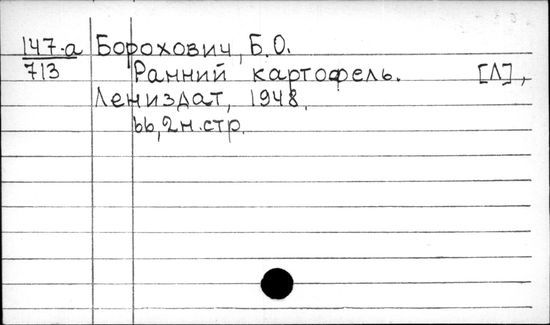 147-а Борохович, Б.О.
713 Ранний картофель. [Л],
Лениздат, 1948.
66, 2 н. стр.